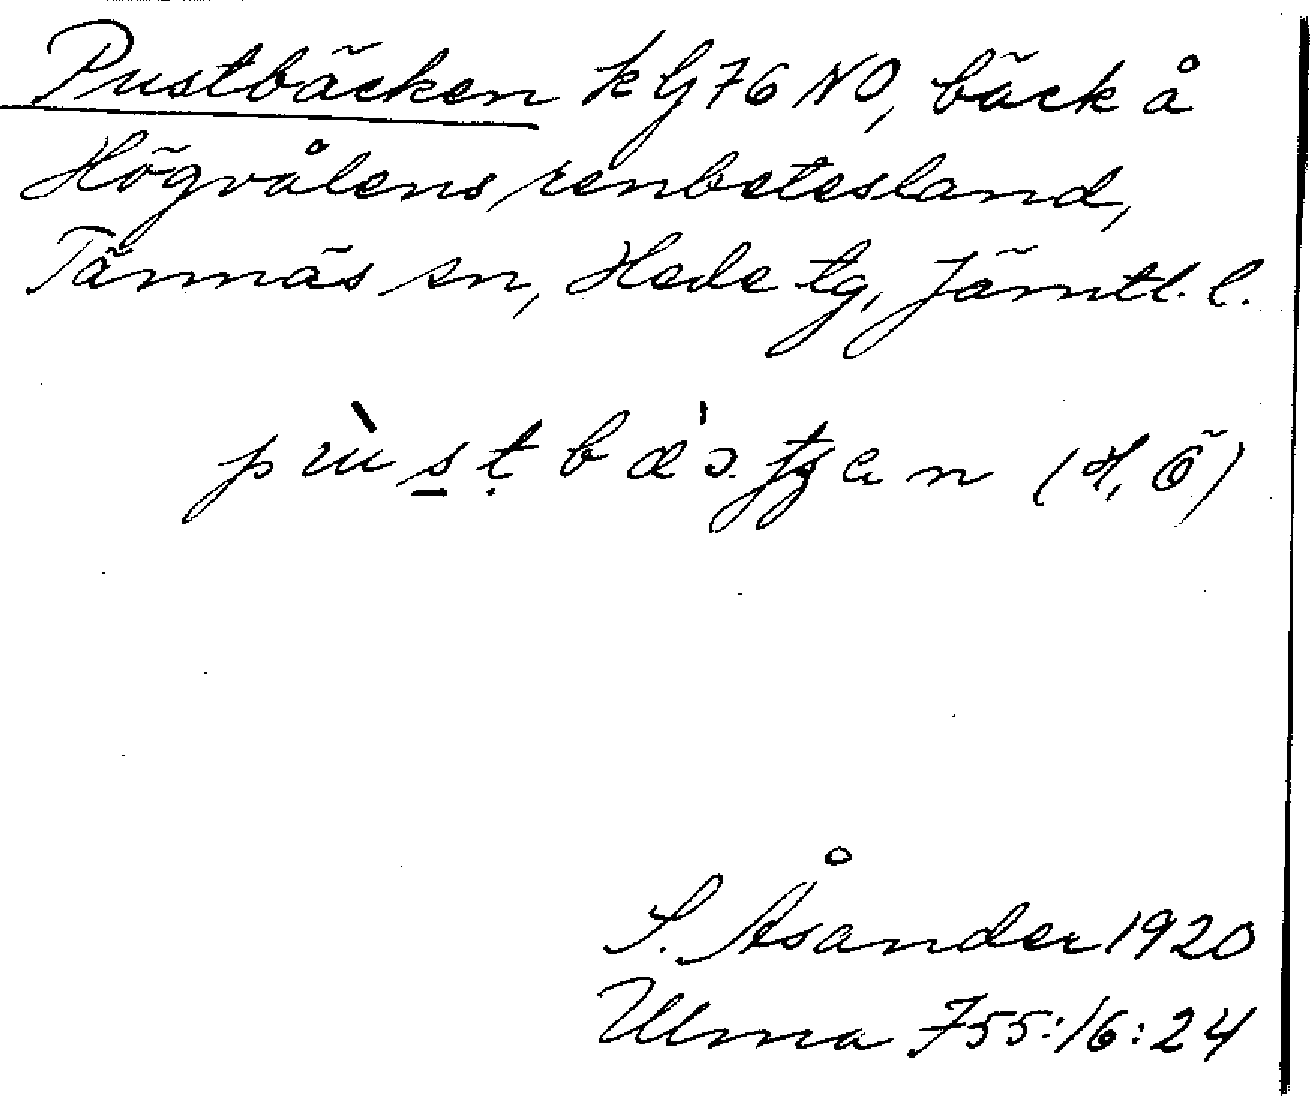 Pustbäcken k G 76 NO, bäck å
Högvålens renbetesland,
Tännäs sn, Hede tg, Jämtl. l.
(H, Ö)
S. Åsander 1920
Ulma 755:16:24